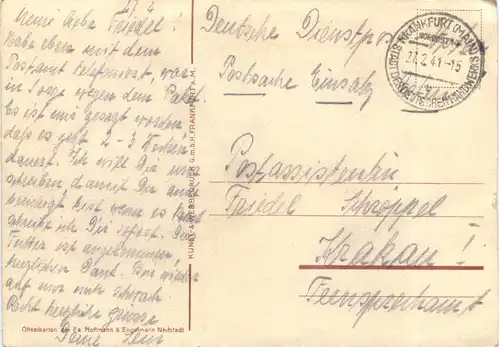 27. 4
Meine liebe Friedel!
Habe eben mit dem
Postamt telefoniert, war
in Sorge wegen dem Paket.
Es ist mir gesagt worden
daß es jetzt 2-3 Wochen
dauert. Ich will Dir nur
schreiben damit Du
beruhigt bist wenn es
schreibe ich Dir sofort. Der
ist angekommen
herzlichen Dank. Bis wieder
auf und
Recht herzliche Grüsse
Deine
Offsetkarton der Fa. Hoffmann & Engelmann Neustadt
KUNST- & WERBEDRUCK G.m.b.H. FRANKFURT A. M.
Deutsche Dienstpost
Postsache Einsatz
FRANKFURT (MAIN)
27.2.41.-15
STADT DES DEUTSCHEN HANDWERKS
Postassistentin
Friedel Schröppel
Krakau!
Fernsprechamt